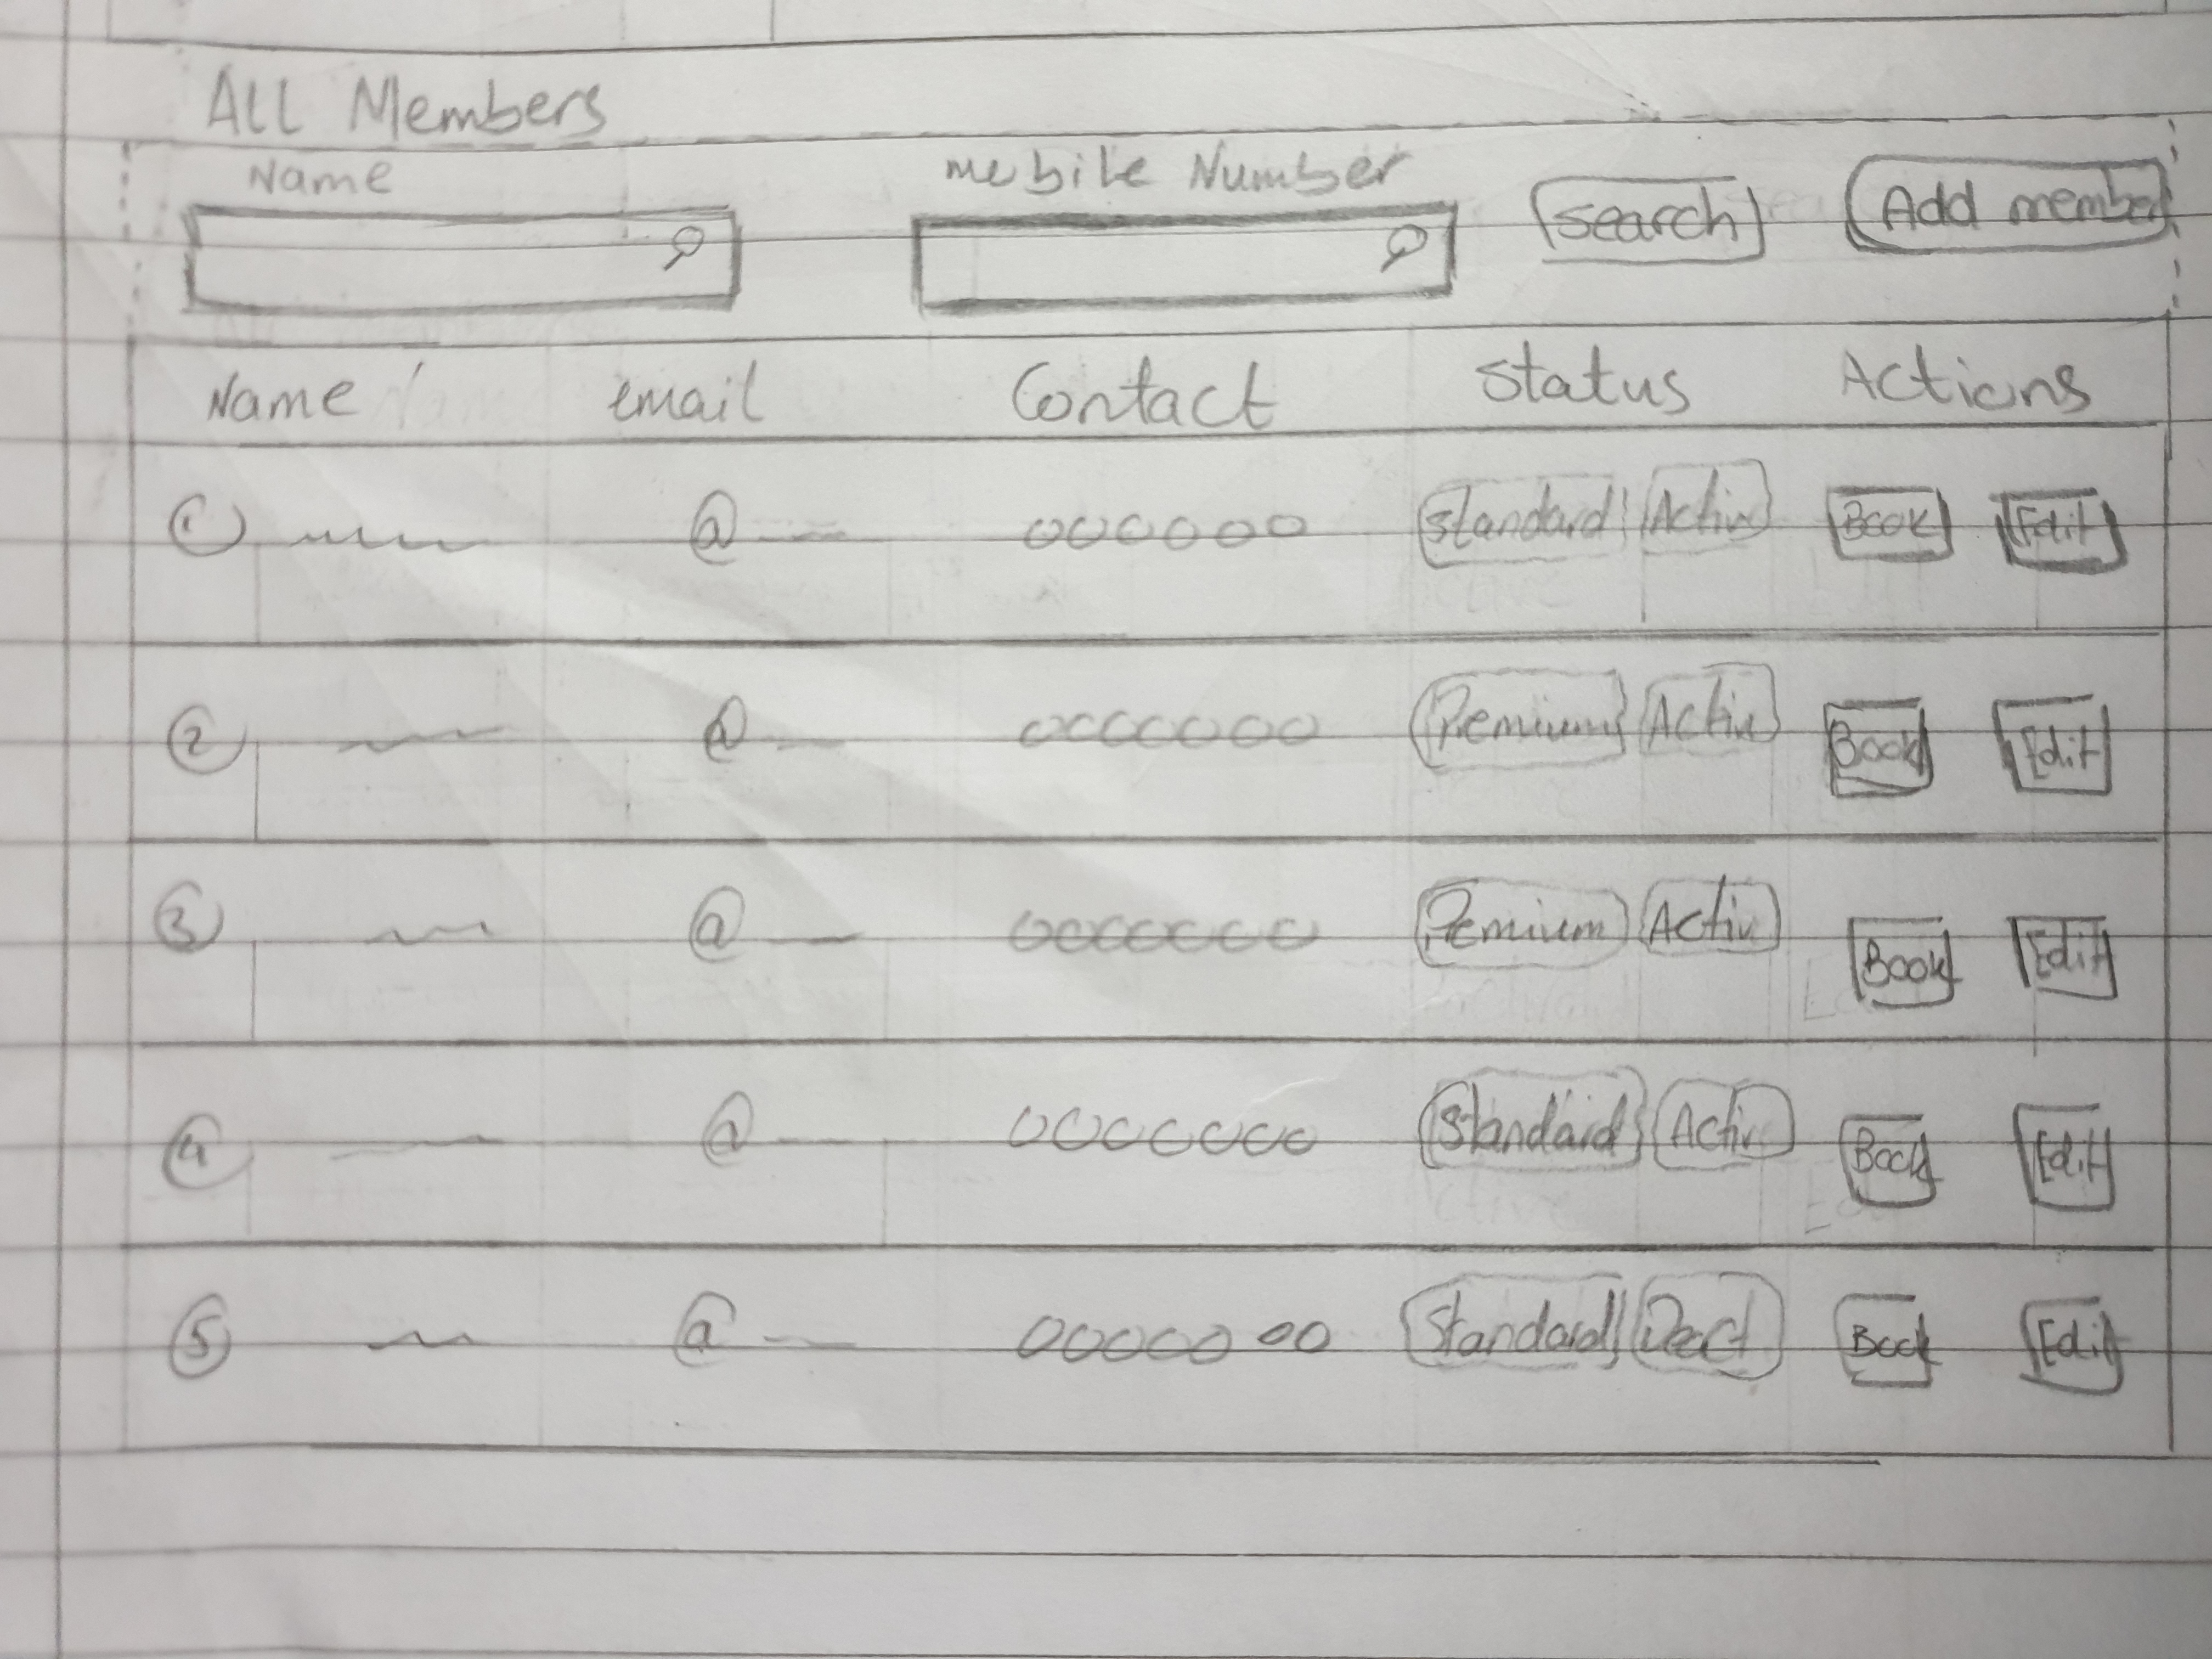 ALL Members
Name mobile Number
search Add member
Name email Contact Status Actions
1 @ 000000 Standard Activ Book Edit
2 @ Premium Activ Book Edit
3 @ Pemium Activ Book Edit
4 @ Standard Activ Book Edit
5 @ Standard Book Edit